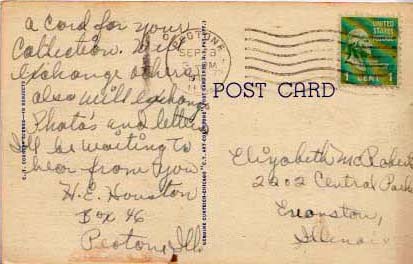 a card for your
collection. Will
exchange others
also will exchange
Photo's and letters
I'll be waiting to
hear from you
H.E. Houston
Box 46
Peotone, Ill.
PEOTONE
SEP
UNITED STATES
1 CENT 1
POST CARD
Elizabeth McRobert
2202 Central Park
Evanston,
Illinois